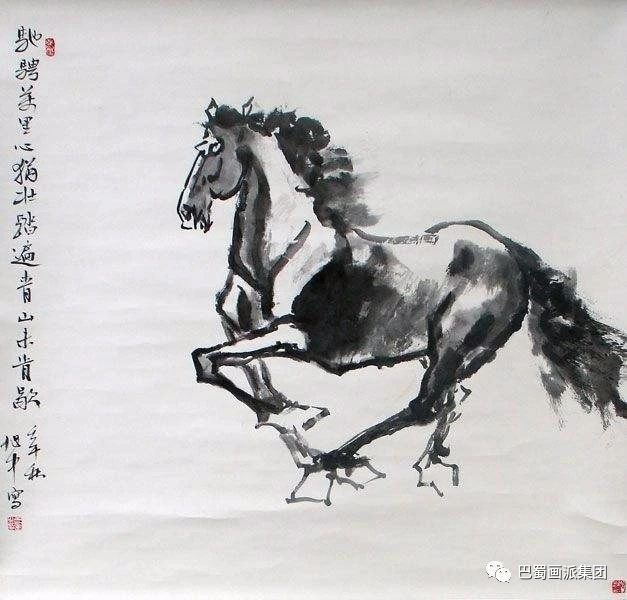 馳騁萬里心猶壯踏遍青山未肯歇
年秋
旭中寫
巴蜀画派集团